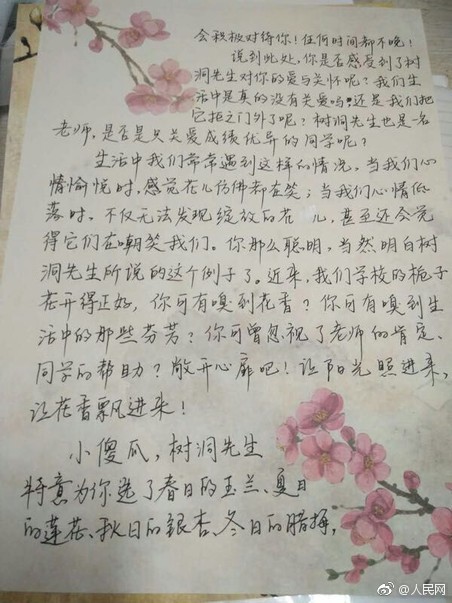 会积极对待你！任何时间都不晚！
说到此处，你是否感受到了树
洞先生对你的爱与关怀呢？我们生
活中是真的没有关爱吗？还是我们把
它拒之门外了呢？树洞先生也是一名
老师，是否是只关爱成绩优异的同学呢？
生活中我们常常遇到这样的情况，当我们心
情愉悦时，感觉花儿仿佛都在笑；当我们心情低
落时，不仅无法发现绽放的花儿，甚至还会觉
得它们在嘲笑我们。你那么聪明，当然明白树
洞先生所说的这个例子了。近来，我们学校的栀子
花开得正好，你可有嗅到花香？你可有嗅到生
活中的那些芬芳？你可曾忽视了老师的肯定、
同学的帮助？敞开心扉吧！让阳光照进来，
让花香飘进来！
小傻瓜，树洞先生
特意为你选了春日的玉兰、夏日
的莲花、秋日的银杏、冬日的腊梅，
@人民网